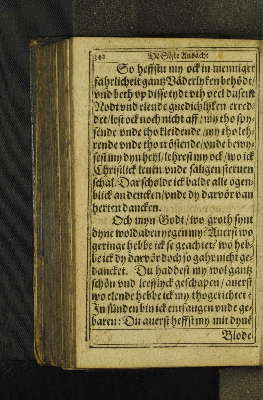 De Sößte Andacht
So heffstu my ock in menniger
fahrlicheit gantz Väderlyken behödt/
vnd beth vp disse tydt vth veel dusent
Nodt vnd elende gnedichlyken erred-
det/lest ock noch nicht aff/my tho spy-
sende vnde tho kleidende/my tho leh-
rende vnde tho tröstende/vnde bewy-
sest my dyn heyl/lehrest my ock/wo ick
Christlick leuen vnde saligen steruen
schal. Dar schölde ick balde alle ogen-
blick an dencken/vnde dy darvör van
herten dancken.
Och myn Godt/wo groth synt
dyne woldaden yegen my/Auerst wo
geringe hebbe ick se geachtet/wo heb-
be ick dy darvör doch so gahr nicht ge-
dancket. Du haddest my wol gantz
schön vnd leeflyck geschapen/auerst
wo elende hebbe ick my thogerichtet:
In sünden bin ick entfangen vnde ge-
baren: Du auerst heffst my mit dyne
Blode